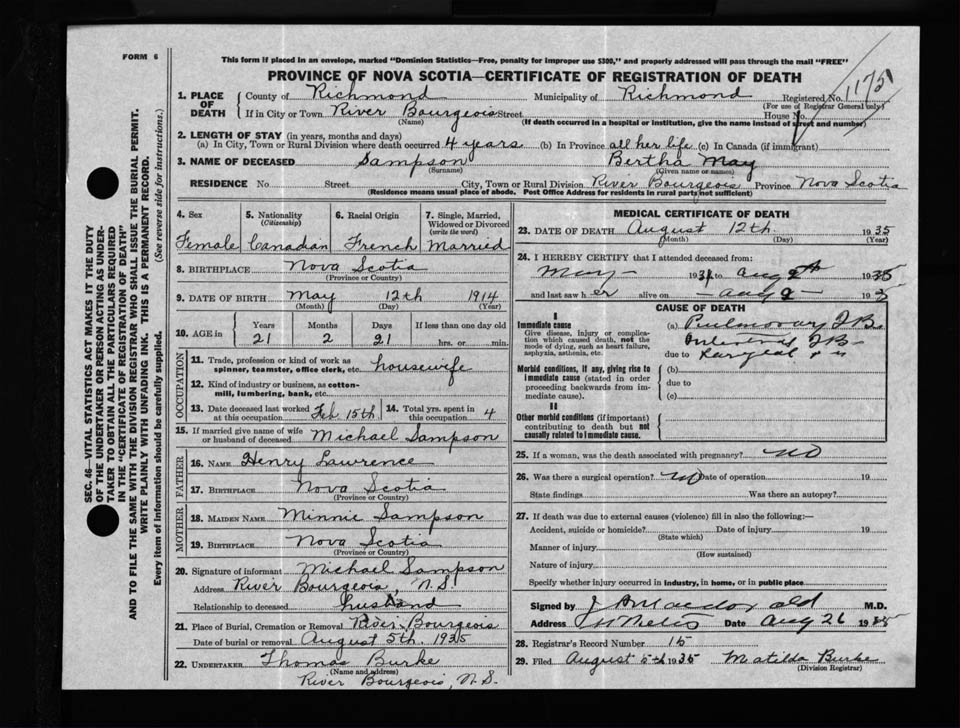 FORM 6
This form if placed in an envelope, marked "Dominion Statistics—Free, penalty for improper use $300," and properly addressed will pass through the mail "FREE"
PROVINCE OF NOVA SCOTIA—CERTIFICATE OF REGISTRATION OF DEATH
1. PLACE OF DEATH
County of Richmond Municipality of Richmond Registered No. 1175
(For use of Registrar General only)
If in City or Town River Bourgeois Street House No.
(Name) (If death occurred in a hospital or institution, give the name instead of street and number)
2. LENGTH OF STAY (in years, months and days)
(a) In City, Town or Rural Division where death occurred 4 years (b) In Province all her life (c) In Canada (if immigrant)
3. NAME OF DECEASED Sampson Bertha May
(Surname) (Given name or names)
RESIDENCE No. Street City, Town or Rural Division River Bourgeois Province Nova Scotia
(Residence means usual place of abode. Post Office Address for residents in rural parts not sufficient)
4. Sex Female
5. Nationality (Citizenship) Canadian
6. Racial Origin French
7. Single, Married, Widowed or Divorced (write the word) Married
8. BIRTHPLACE Nova Scotia
(Province or Country)
9. DATE OF BIRTH May 12th 1914
(Month) (Day) (Year)
10. AGE in Years Months Days If less than one day old
21 2 21 hrs. or min.
OCCUPATION
11. Trade, profession or kind of work as spinner, teamster, office clerk, etc. housewife
12. Kind of industry or business, as cotton-mill, lumbering, bank, etc.
13. Date deceased last worked at this occupation Feb 15th
14. Total yrs. spent in this occupation 4
15. If married give name of wife or husband of deceased Michael Sampson
FATHER
16. NAME Henry Lawrence
17. BIRTHPLACE Nova Scotia
(Province or Country)
MOTHER
18. MAIDEN NAME Minnie Sampson
19. BIRTHPLACE Nova Scotia
(Province or Country)
20. Signature of informant Michael Sampson
Address River Bourgeois, N.S.
Relationship to deceased husband
21. Place of Burial, Cremation or Removal River Bourgeois
Date of burial or removal August 5th. 1935
22. UNDERTAKER Thomas Burke
(Name and address)
River Bourgeois, N.S.
MEDICAL CERTIFICATE OF DEATH
23. DATE OF DEATH August 12th. 1935
(Month) (Day) (Year)
24. I HEREBY CERTIFY that I attended deceased from:
May 193 to Aug 1935
and last saw her alive on Aug 193
CAUSE OF DEATH
I
Immediate cause
Give disease, injury or complication which caused death, not the mode of dying, such as heart failure, asphyxia, asthenia, etc.
(a) Pulmonary T.B.
Intestinal T.B.
due to
Morbid conditions, if any, giving rise to immediate cause (stated in order proceeding backwards from immediate cause).
(b)
due to
(c)
II
Other morbid conditions (if important) contributing to death but not causally related to immediate cause.
25. If a woman, was the death associated with pregnancy? NO
26. Was there a surgical operation? NO Date of operation 19
State findings Was there an autopsy?
27. If death was due to external causes (violence) fill in also the following:—
Accident, suicide or homicide? Date of injury 19
(State which)
Manner of injury
(How sustained)
Nature of injury
Specify whether injury occurred in industry, in home, or in public place
Signed by M.D.
Address St Peters Date Aug 26 1935
28. Registrar's Record Number 15
29. Filed August 5th 1935 Matilda Burke
(Division Registrar)
SEC. 46—VITAL STATISTICS ACT MAKES IT THE DUTY
OF THE UNDERTAKER OR PERSON ACTING AS UNDER-
TAKER TO OBTAIN ALL THE PARTICULARS REQUIRED
IN THE "CERTIFICATE OF REGISTRATION OF DEATH"
AND TO FILE THE SAME WITH THE DIVISION REGISTRAR WHO SHALL ISSUE THE BURIAL PERMIT.
WRITE PLAINLY WITH UNFADING INK. THIS IS A PERMANENT RECORD.
Every item of information should be carefully supplied. (See reverse side for instructions.)